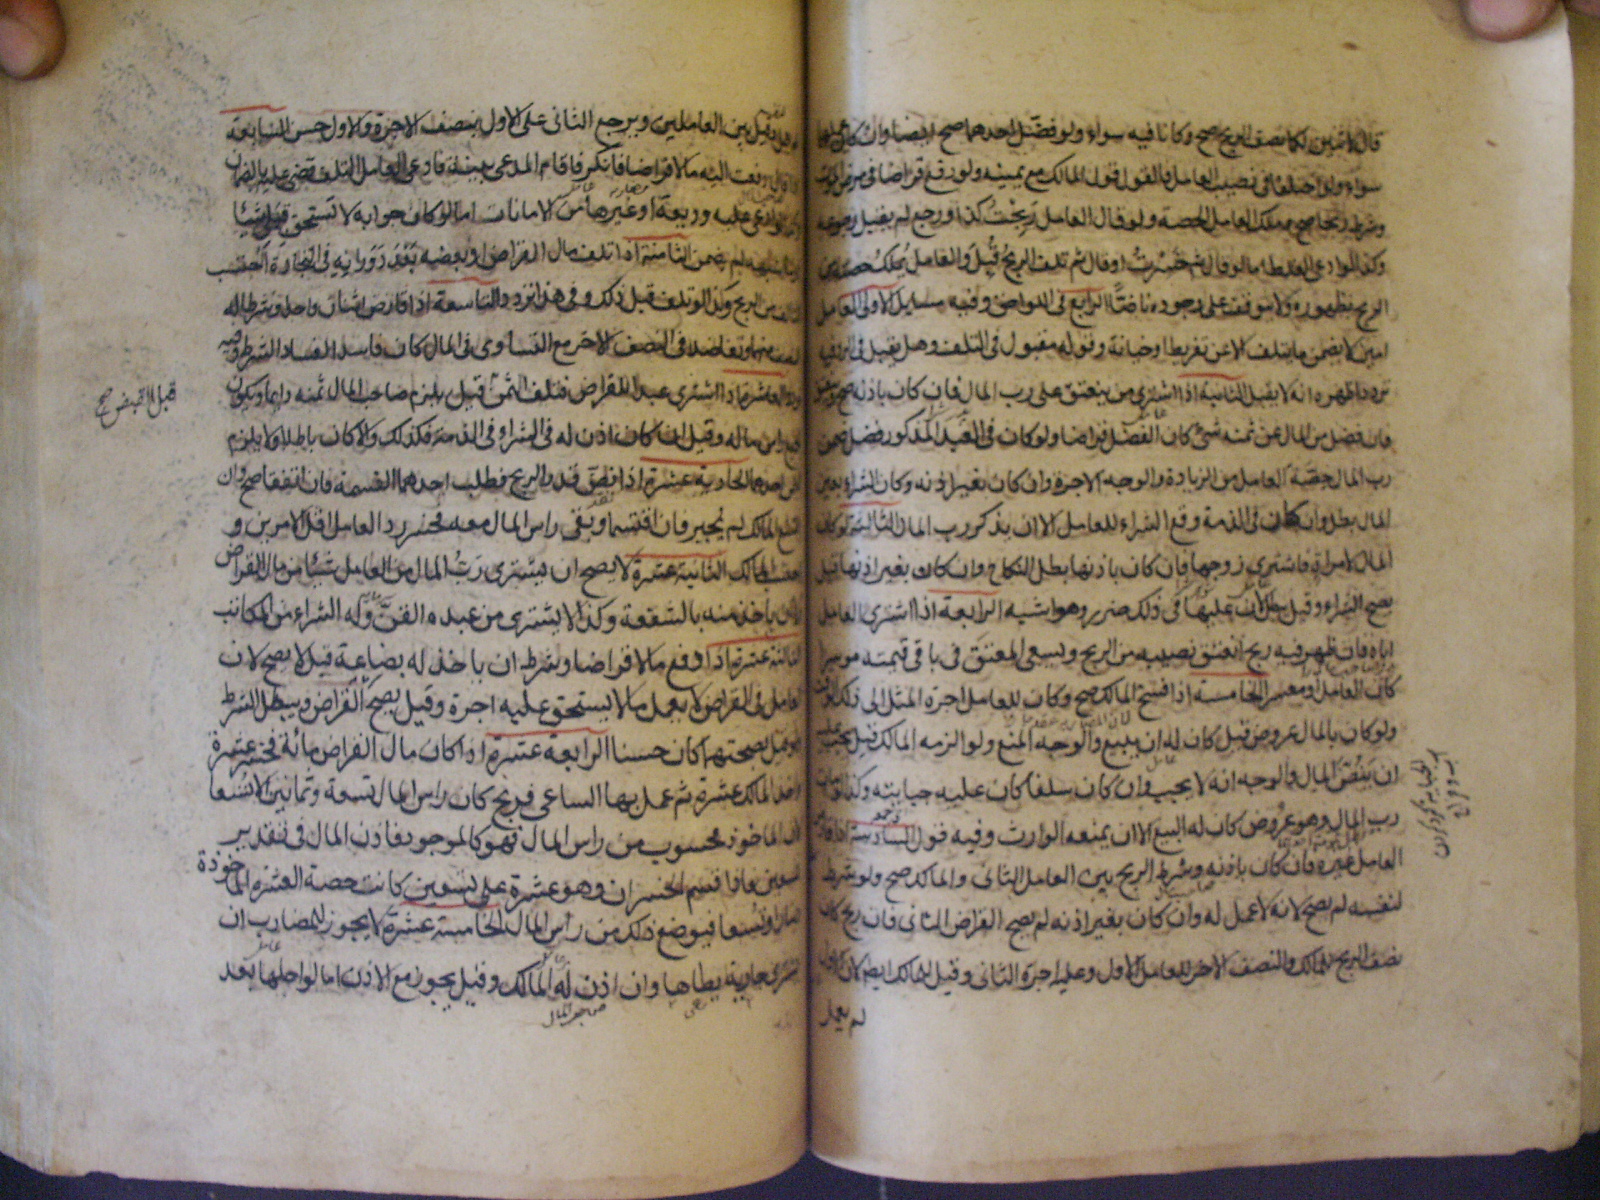 قال لاثنين لكما نصف الربح صح وكانا فيه سواء ولو فضل احدهما صح ايضا وان كان عملهما
سواء ولو اختلفا في نصيب العامل فالقول قول المالك مع يمينه ولو دفع قراضا في مرض الموت
وشرط ربحا صح وملك العامل الحصة ولو قال العامل ربحت كذا ورجع لم يقبل رجوعه
وكذا لو ادعى الغلط اما لو قال ثم خسرت او قال ثم تلف الربح قبل والعامل يملك حصته من
الربح بظهوره ولا يتوقف على وجوده ناضا الرابع في اللواحق وفيه مسايل الاولى العامل
امين لا يضمن ما يتلف الا عن تفريط او خيانة وقوله مقبول في التلف وهل يقبل في الرد فيه
تردد اظهره انه لا يقبل الثانية اذا اشترى من ينعتق على رب المال فان كان باذنه صح وينعتق
فان فضل من المال عن ثمنه شئ كان الفضل قراضا ولو كان في العبد المذكور فضل ضمن
رب المال حصة العامل من الزيادة والوجه الاجرة وان كان بغير اذنه وكان الشراء بعين
المال بطل وان كان في الذمة وقع الشراء للعامل الا ان يذكر رب المال الثالثة لو كان
المال لامراة فاشترى زوجها فان كان باذنها بطل النكاح وان كان بغير اذنها قيل
يصح الشراء وقيل يبطل لان عليها في ذلك ضرر وهو اشبه الرابعة اذا اشترى العامل
اباه فان ظهر فيه ربح انعتق نصيبه من الربح ويسعى المعتق في باقي قيمته موسرا
كان العامل او معسرا الخامسة اذا فسخ المالك صح وكان للعامل اجرة المثل الى ذلك الوقت
ولو كان بالمال عروض قيل كان له ان يبيع والوجه المنع ولو الزمه المالك قيل يجب عليه
ان ينض المال والوجه انه لا يجب وان كان سلفا كان عليه جبايته وكذا لو مات
رب المال وهو عروض كان له البيع الا ان يمنعه الوارث وفيه قول السادسة اذا قارض
العامل غيره فان كان باذنه وشرط الربح بين العامل الثاني والمالك صح ولو شرط
لنفسه لم يصح لانه لا عمل له وان كان بغير اذنه لم يصح القراض الثاني فان ربح كان
نصف الربح للمالك والنصف الاخر للعامل الاول وعليه اجرة الثاني وقيل للمالك ايضا لان الاول
لم يعمل
وقيل بين العاملين ويرجع الثاني على الاول بنصف الاجرة والاول حسن السابعة
اذا قال دفعت اليه مالا قراضا فانكر فاقام المدعي بينة فادعى العامل التلف قضي عليه بالضمان
وكذا لو ادعى عليه وديعة او غيرها من الامانات اما لو كان جوابه لا تستحق قبلي شيئا
لم يضمن الثامنة اذا تلف مال القراض او بعضه بعد دورانه في التجارة احتسب
التالف من الربح وكذا لو تلف قبل ذلك وفي هذا تردد التاسعة اذا قارض اثنان واحدا وشرطا له
النصف منهما وتفاضلا في النصف الاخر مع التساوي في المال كان فاسدا لفساد الشرط وفيه
تردد العاشرة اذا اشترى عبدا للقراض فتلف الثمن قيل يلزم صاحب المال ثمنه دايما ويكون
الجميع راس ماله وقيل ان كان اذن له في الشراء في الذمة فكذلك والا كان باطلا ولا يلزم
الثمن احدهما الحادية عشرة اذا نض قدر الربح فطلب احدهما القسمة فان اتفقا صح وان
امتنع المالك لم يجبر فان اقتسما وبقي راس المال معه فخسر رد العامل اقل الامرين و
احتسب المالك الثانية عشرة لا يصح ان يشتري رب المال من العامل شيئا من مال القراض
ولا ان ياخذ منه بالشفعة وكذا لا يشتري من عبده القن وله الشراء من المكاتب
الثالثة عشرة اذا دفع مالا قراضا وشرط ان ياخذ له بضاعة قيل لا يصح لان
العامل في القراض لا يعمل ما لا يستحق عليه اجرة وقيل يصح القراض ويبطل الشرط
ولو قيل بصحتهما كان حسنا الرابعة عشرة اذا كان مال القراض مائة فخسر عشرة
واخذ المالك عشرة ثم عمل بها الساعي فربح كان راس المال تسعة وثمانين الا تسعا
لان الماخوذ محسوب من راس المال فهو كالموجود فاذن المال في تقدير
تسعين فاذا قسم الخسران وهو عشرة على تسعين كانت حصة العشرة الماخوذة
دينارا وتسعا فيوضع ذلك من راس المال الخامسة عشرة لا يجوز للمضارب ان
يشتري جارية يطاها وان اذن له المالك وقيل يجوز مع الاذن اما لو احلها بعد
قبل القبض صح